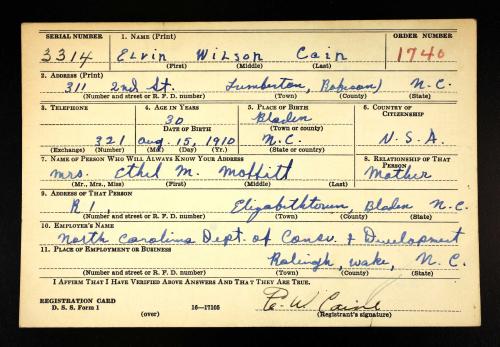 SERIAL NUMBER 1. NAME (Print) ORDER NUMBER
3314 ELVIN WILSON CAIN 1740
(First) (Middle) (Last)
2. ADDRESS (Print)
311 2nd St. Lumberton, Robeson) N.C.
(Number and street or R. F. D. number) (Town) (County) (State)
3. TELEPHONE 4. AGE IN YEARS 5. PLACE OF BIRTH 6. COUNTRY OF CITIZENSHIP
30 Bladen
DATE OF BIRTH (Town or county)
321 Aug. 15, 1910 N.C. U.S.A.
(Exchange) (Number) (Mo.) (Day) (Yr.) (State or country)
7. NAME OF PERSON WHO WILL ALWAYS KNOW YOUR ADDRESS 8. RELATIONSHIP OF THAT PERSON
Mrs. Ethel M. Moffitt Mother
(Mr., Mrs., Miss) (First) (Middle) (Last)
9. ADDRESS OF THAT PERSON
R 1, Elizabethtown, Bladen N.C.
(Number and street or R. F. D. number) (Town) (County) (State)
10. EMPLOYER'S NAME
North Carolina Dept. of Consv. & Development
11. PLACE OF EMPLOYMENT OR BUSINESS
Raleigh, Wake, N.C.
(Number and street or R. F. D. number) (Town) (County) (State)
I AFFIRM THAT I HAVE VERIFIED ABOVE ANSWERS AND THAT THEY ARE TRUE.
REGISTRATION CARD
D. S. S. Form 1 (over) 16—17105 (Registrant's signature)